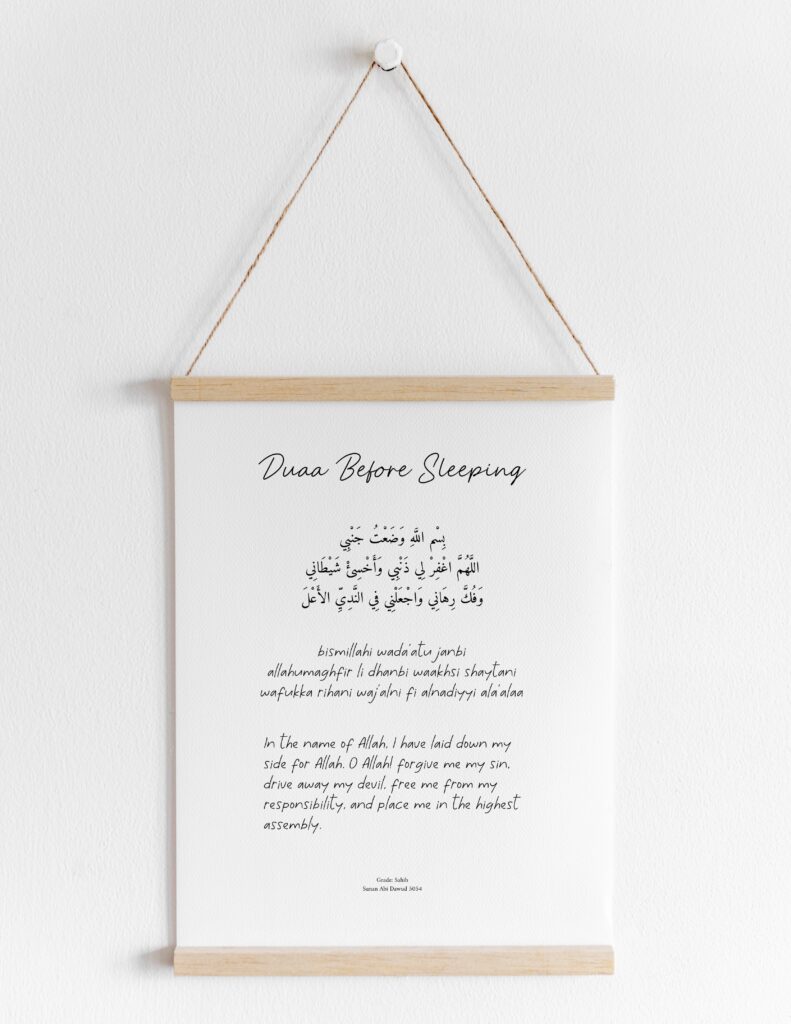 Duaa Before Sleeping
بِسْمِ اللَّهِ وَضَعْتُ جَنْبِي
اللَّهُمَّ اغْفِرْ لِي ذَنْبِي وَأَخْسِئْ شَيْطَانِي
وَفُكَّ رِهَانِي وَاجْعَلْنِي فِي النَّدِيِّ الأَعْلَ
bismillahi wada'atu janbi
allahumaghfir li dhanbi waakhsi shaytani
wafukka rihani waj'alni fi alnadiyyi ala'alaa
In the name of Allah, I have laid down my
side for Allah. O Allah! forgive me my sin,
drive away my devil, free me from my
responsibility, and place me in the highest
assembly.
Grade: Sahih
Sunan Abi Dawud 5054